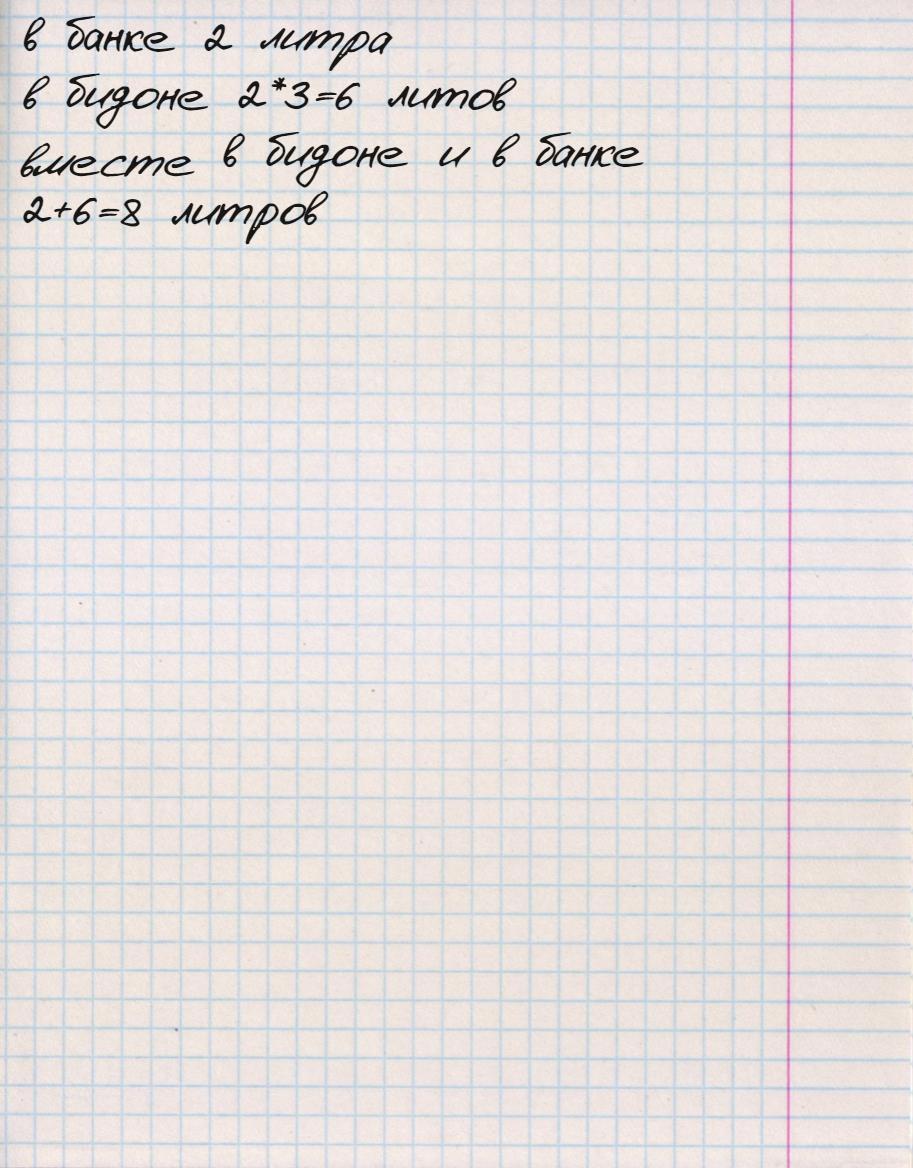 в банке 2 литра
в бидоне 2*3=6 литов
вместе в бидоне и в банке
2+6=8 литров